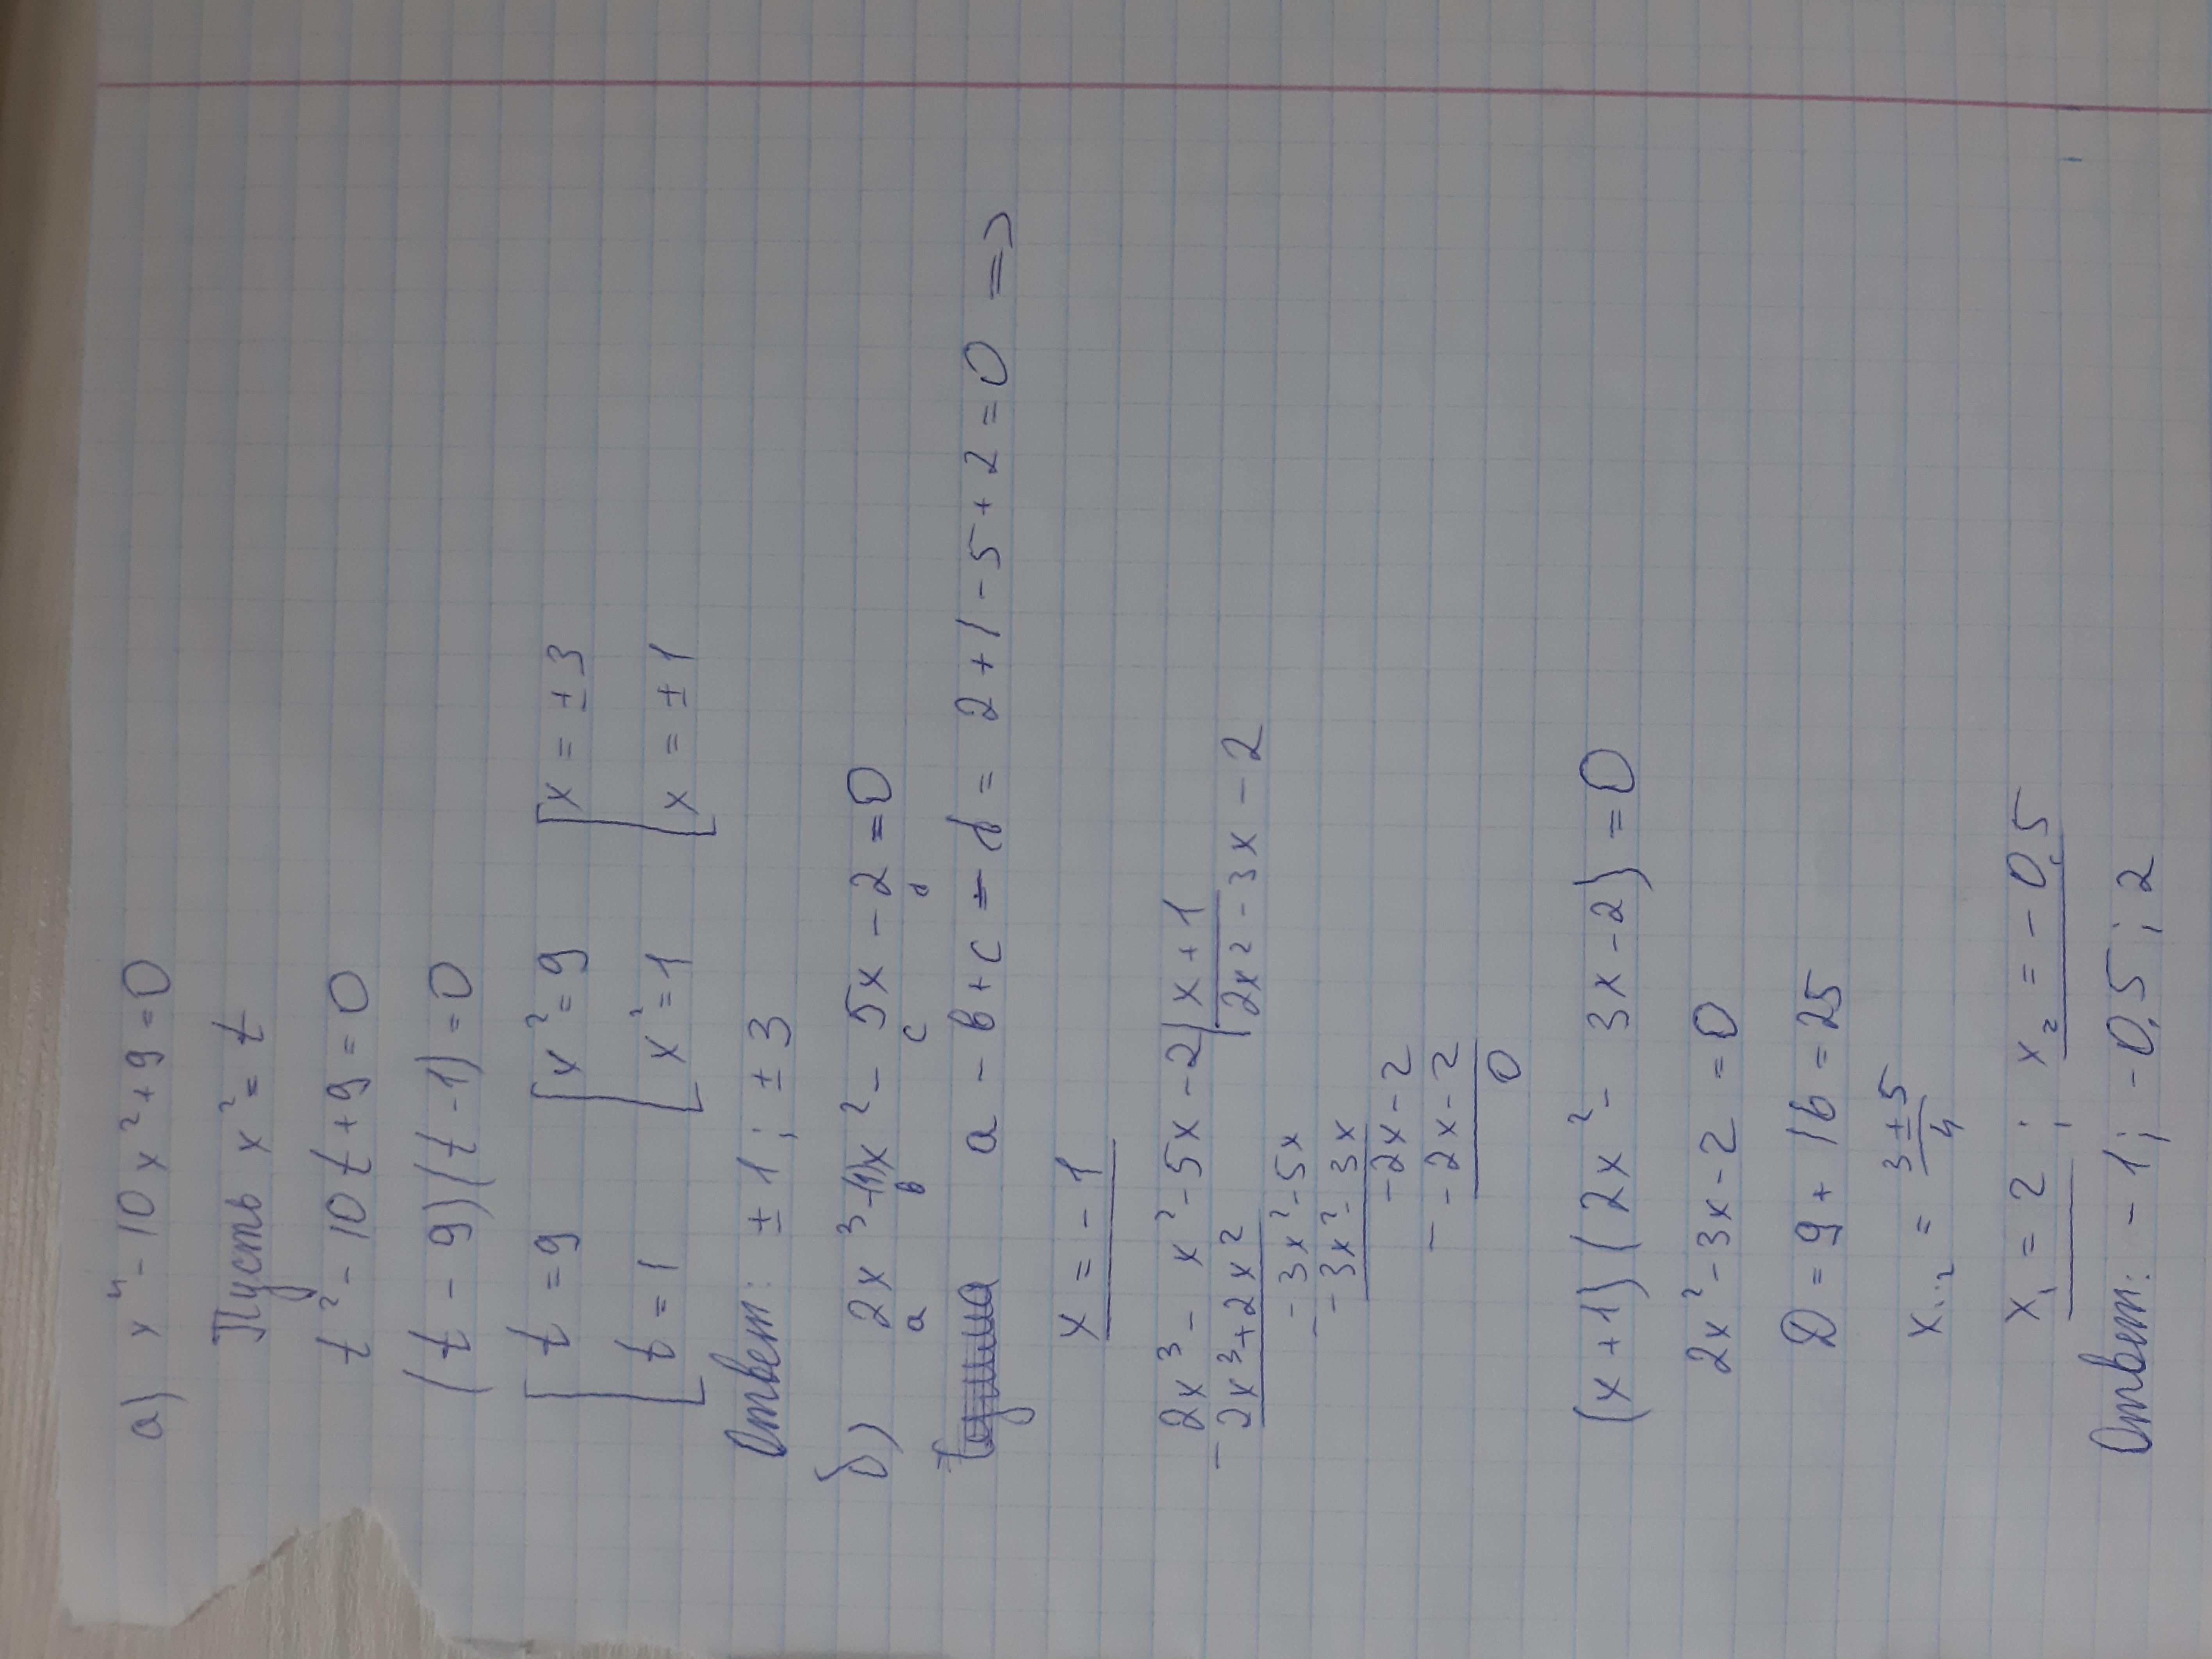 а) x⁴ - 10x² + 9 = 0
Пусть x² = t
t² - 10t + 9 = 0
(t - 9)(t - 1) = 0
[t = 9 [x² = 9 [x = ± 3
[t = 1 [x² = 1 [x = ± 1
Ответ: ± 1; ± 3
б) 2x³ -(1)x² - 5x - 2 = 0
a в c d
a - в + c - d = 2 + 1 - 5 + 2 = 0 =>
x = - 1
2x³ - x² - 5x - 2 | x + 1
- 2x³ + 2x² | 2x² - 3x - 2
- 3x² - 5x
- - 3x² - 3x
- 2x - 2
- - 2x - 2
0
(x + 1)(2x² - 3x - 2) = 0
2x² - 3x - 2 = 0
D = 9 + 16 = 25
x₁,₂ = 3 ± 5 / 4
x₁ = 2 ; x₂ = - 0,5
Ответ: - 1; - 0,5; 2